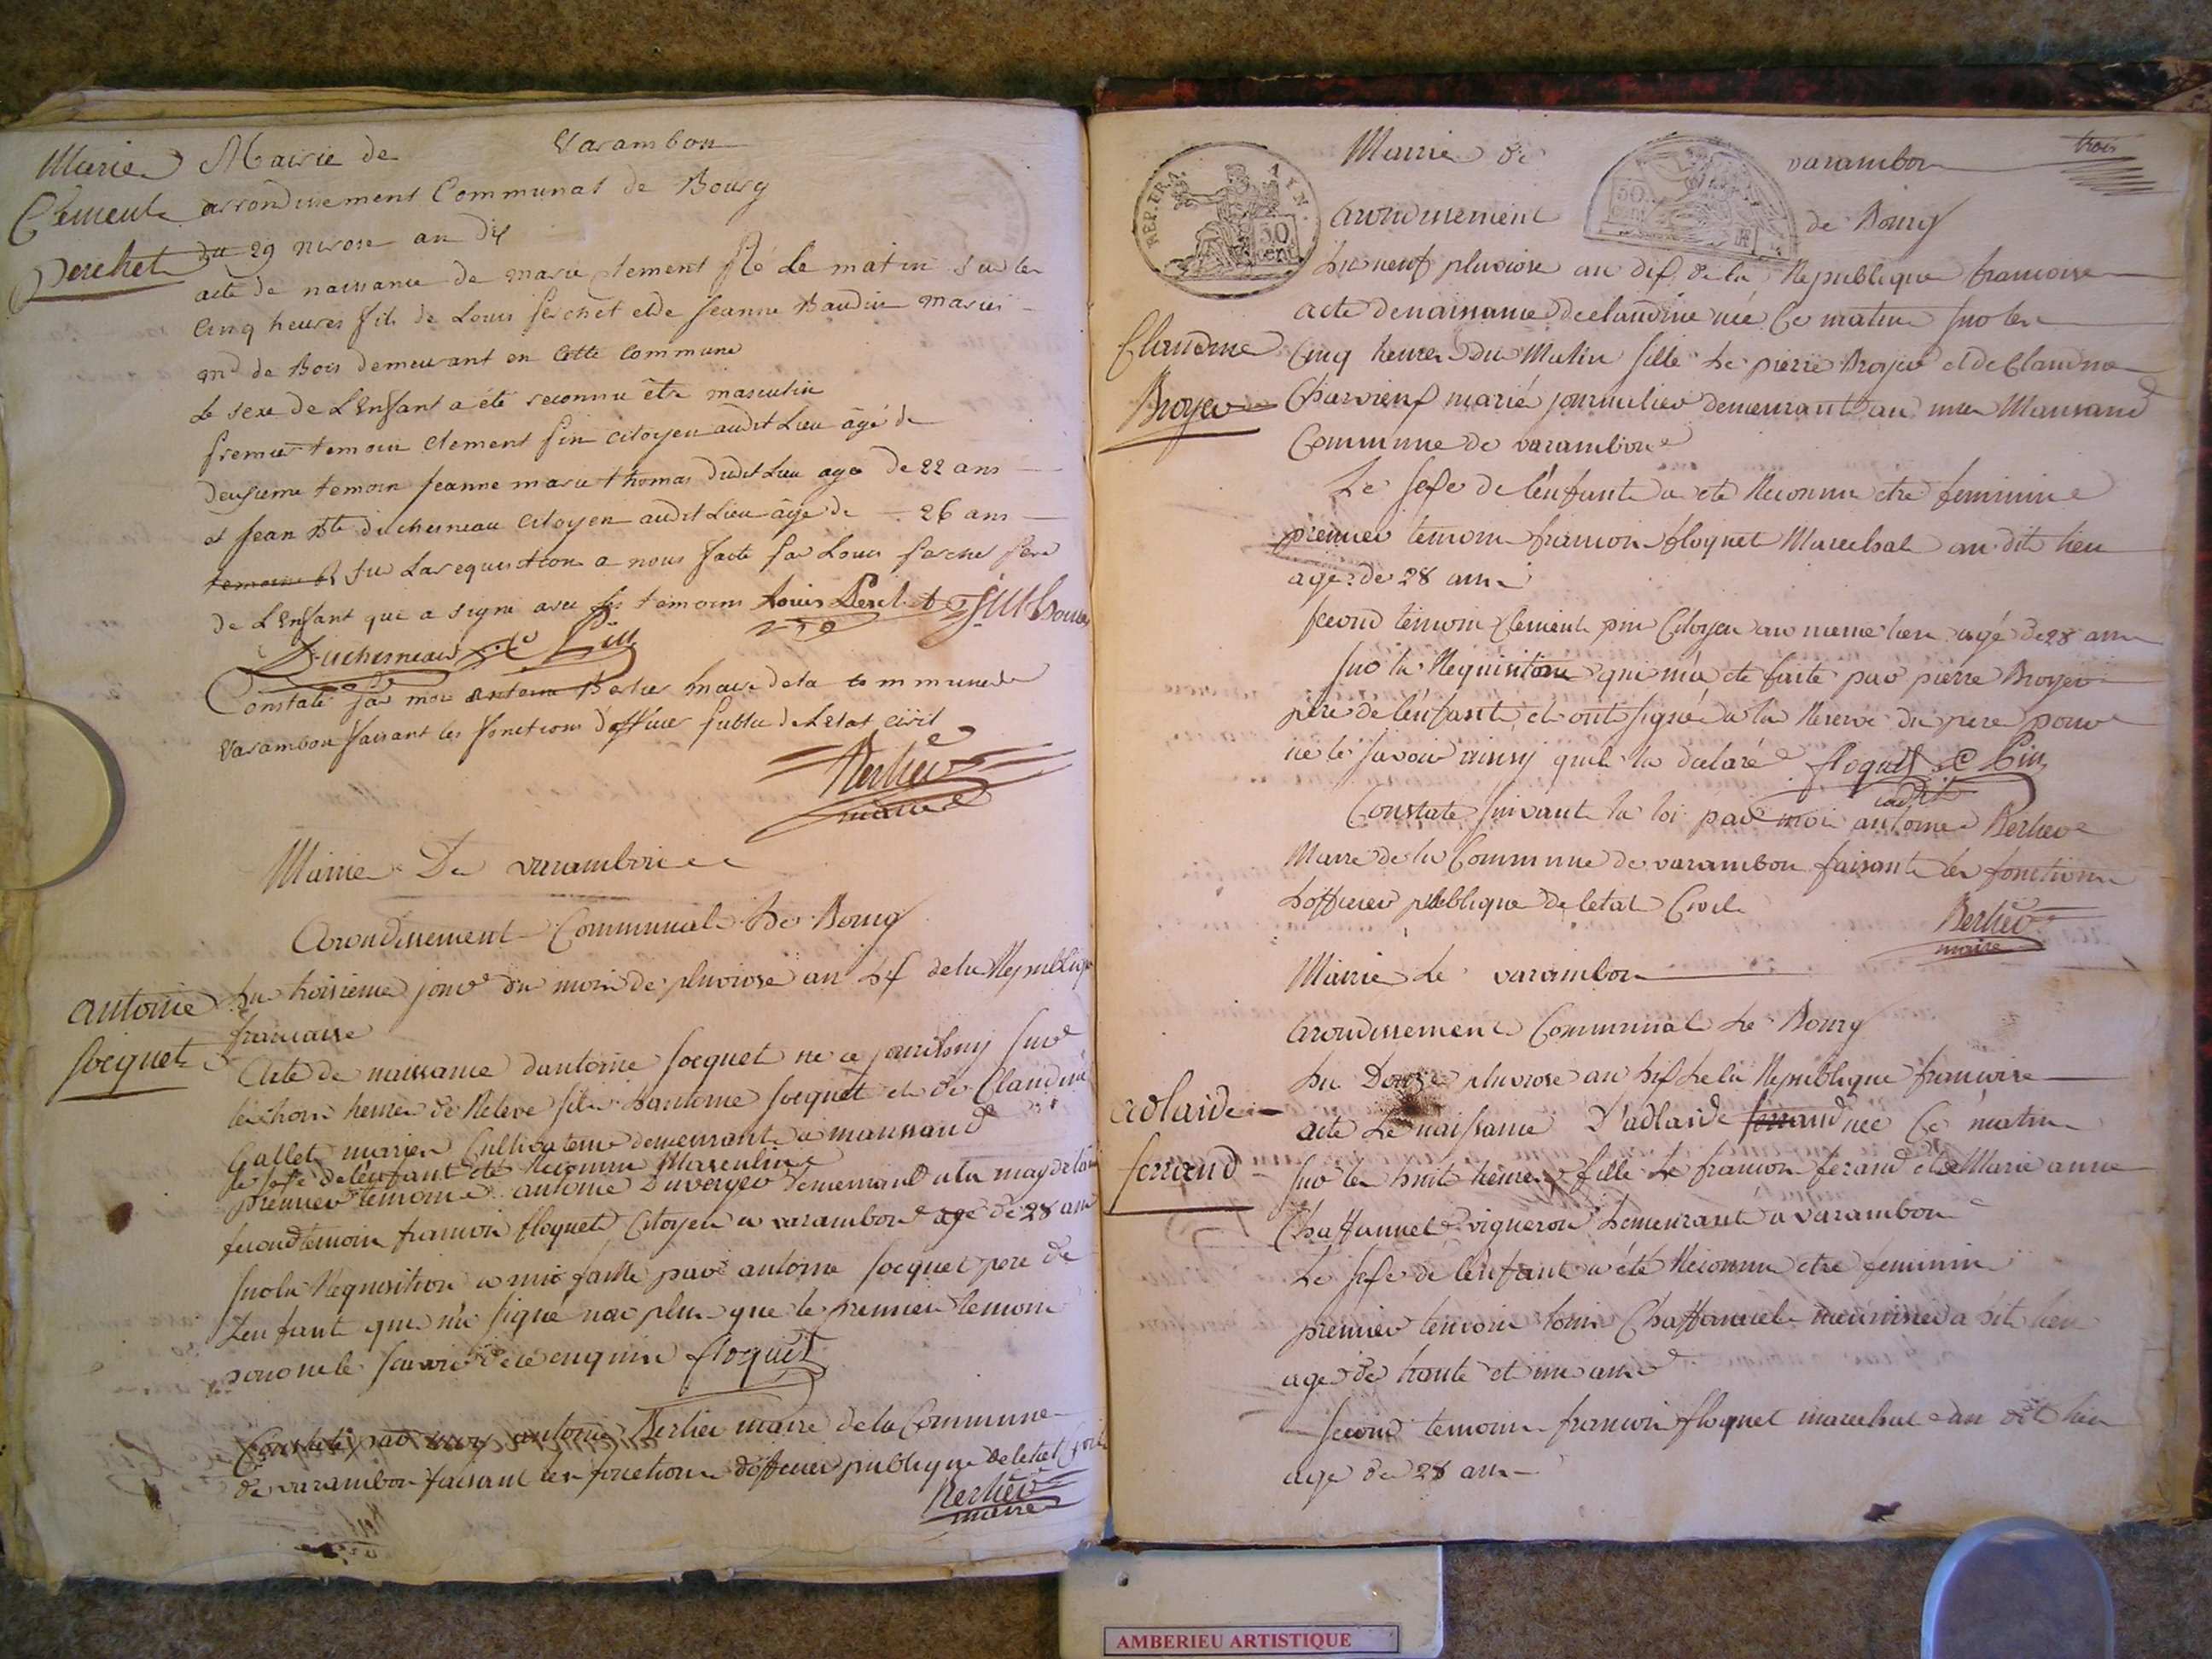 Marie
Clement
Perchet
Mairie de Varambon
arrondissement Communal de Bourg
du 29 nivose an dix
acte de naissance de marie clement né le matin sur les
cinq heures fils de Louis perchet et de jeanne Baudin mariés
md de Bois demeurant en cette commune
le sexe de L'Enfant a été reconnu être masculin
premier temoin clement pin citoyen audit Lieu âgé de
deuxieme temoin jeanne marie thomas dudit Lieu agé de 22 ans
et jean Bte duchesneau citoyen audit Lieu âgé de 26 ans
temoins et sur La requisition a nous faite par Louis perchet pere
de L'Enfant qui a signé avec les temoins Louis Perchet
Duchesneau C Pin
Constaté par moi antoine Berlier maire de la commune de
varambon faisant les fonctions d'officier public de L'etat civil
Berlier
maire
Mairie De varambon
Arondissement Communal De Bourg
antoine
socquet
Du troisieme jour du mois de pluviose an dix de la Republique
francaise
Acte de naissance d'antoine socquet né ce jourd'huy sur
les trois heures de Relevé fils d'antoine socquet et de Claudine
Gallet mariés Cultivateur demeurant a maussand
le sexe de l'enfant été Reconnu Masculin
premier temoin antoine Duverger demeurant
second temoin francois floquet Citoyen a varambon agé de 28 ans
sur la Requisition a moi faitte par antoine socquet pere de
L'enfant qui n'a signé non plus que le premier temoin
pour ne le savoir de ce enquis floquet
Constaté par moy antoine Berlier maire de la Commune
de varambon faisant les fonctions d'officier publique de letat Civil
Berlier
maire
trois
REP. FRA.
AYN.
50
cent
50
cent
Mairie de varambon
Arondissement de Bourg
Du neuf pluviose an dix de la Republique francoise
Claudine
Broyer
acte de naissance de claudine née Ce matin sur les
Cinq heures du Matin fille de pierre Broyer et de Claudine
Charvieux marié journalier demeurant au mas Maussand
Commune de varambon
Le sexe de l'enfant a été Reconnu etre feminine
premier temoin francois floquet Marechal au dit lieu
agé de 28 ans
second temoin Clement pin Citoyen au meme lieu agé de 28 ans
sur la Requisition qui m'a été faite par pierre Broyer
père de l'enfant et ont signé a la Reserve du pere pour
ne le savoir ainsy quil la declaré floquet C Pin
Constaté suivant la loi par moi antoine Berlier
Maire de la Commune de varambon faisant les fonctions
d'officier publique de letat Civil
Berlier
maire
Mairie de varambon
Arondissement Communal de Bourg
Du Douze pluviose an dix de la Republique francoise
adlaide
ferrand
acte de naissance D'adlaide ferrand née Ce matin
sur les huit heures fille de francois ferand et de Marie anne
Chaffannel vigneron demeurant a varambon
Le sexe de l'enfant a été Reconnu etre feminin
premier temoin louis Chaffannel a dit lieu
agé de trante et un ans
second temoin francois floquet marechal au dit lieu
agé de 28 ans
AMBERIEU ARTISTIQUE